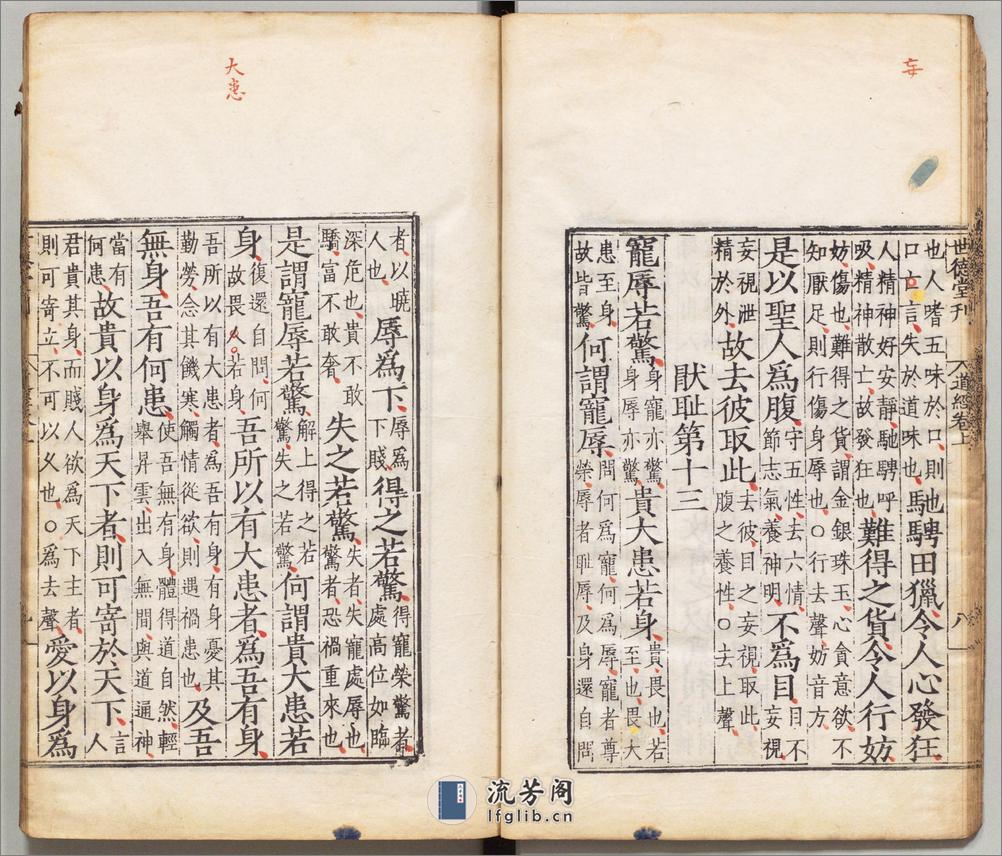 妄
世德堂刊 道經卷上 八
也人嗜五味於口則口亡言失於道味也馳騁田獵令人心發狂
人精神好安靜馳騁呼吸精神散亡故發狂也難得之貨令人行妨
妨傷也難得之貨謂金銀珠玉心貪意欲不知厭足則行傷身辱也○行去聲妨音方
是以聖人爲腹守五性去六情節志氣養神明不爲目目不妄視
妄視泄精於外故去彼取此去彼目之妄視取此腹之養性○去上聲
猒恥第十三
寵辱若驚身寵亦驚身辱亦驚貴大患若身貴畏也若至也畏大
患至身故皆驚何謂寵辱問何爲寵何爲辱寵者尊榮辱者恥辱及身還自問
大患
者以曉人也辱爲下辱爲下賤得之若驚得寵榮驚者處高位如臨
深危也貴不敢驕富不敢奢失之若驚失者失寵處辱也驚者恐禍重來也
是謂寵辱若驚解上得之若驚失之若驚何謂貴大患若
身復還自問何故畏人若身吾所以有大患者爲吾有身
吾所以有大患者爲吾有身有身憂其勤勞念其饑寒觸情從欲則遇禍患也及吾
無身吾有何患使吾無有身體得道自然輕舉昇雲出入無間與道通神
當有何患故貴以身爲天下者則可寄於天下言人
君貴其身而賤人欲爲天下主者則可寄立不可以久也○爲去聲愛以身爲
流芳阁
lfglib.cn